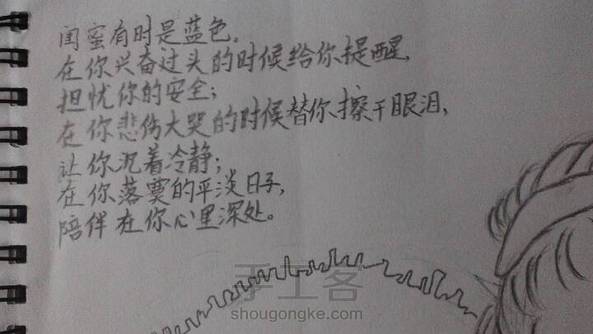 闺蜜有时是蓝色。
在你兴奋过头的时候给你提醒,
担忧你的安全;
在你悲伤大哭的时候替你擦干眼泪,
让你沉着冷静;
在你落寞的平淡日子,
陪伴在你心里深处。
手工客
shougongke.com